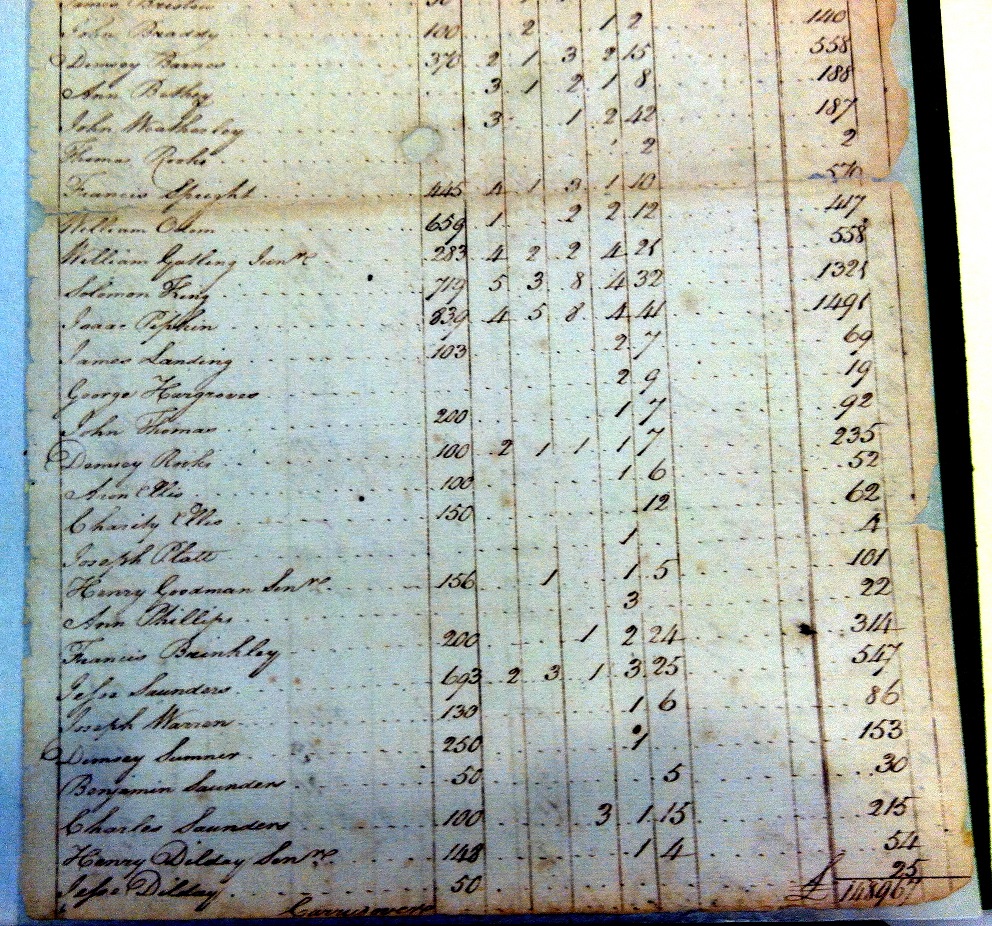 James
John Braddy 100 2 1 2 140
Demsey Barnes 370 2 1 3 2 15 558
Ann Bethey 3 1 2 1 8 188
John 3 1 2 42 187
Thomas Rooks 2 2
Francis Speight 445 4 1 3 1 10 570
William 659 1 2 2 12 417
William Gatling Junr 283 4 2 2 4 21 558
Solomon King 719 5 3 8 4 32 1321
Isaac Pipkin 839 4 5 8 4 41 1491
James Landing 103 2 7 69
George Hargroves 2 9 19
John Thomas 200 1 7 92
Demsey Rooks 100 2 1 1 1 7 235
Ann Ellis 100 1 6 52
Charity Ellis 150 12 62
Joseph Platt 1 4
Henry Goodman Senr 156 1 1 5 101
Ann Phillips 3 22
Francis Brinkley 200 1 2 24 314
Jesse Saunders 693 2 3 1 3 25 547
Joseph Warren 130 1 6 86
Demsey Sumner 250 1 153
Benjamin Saunders 50 5 30
Charles Saunders 100 3 1 15 215
Henry Dilday Senr 148 1 4 54
Jesse Dilday 50 25
Carry over £ 14896